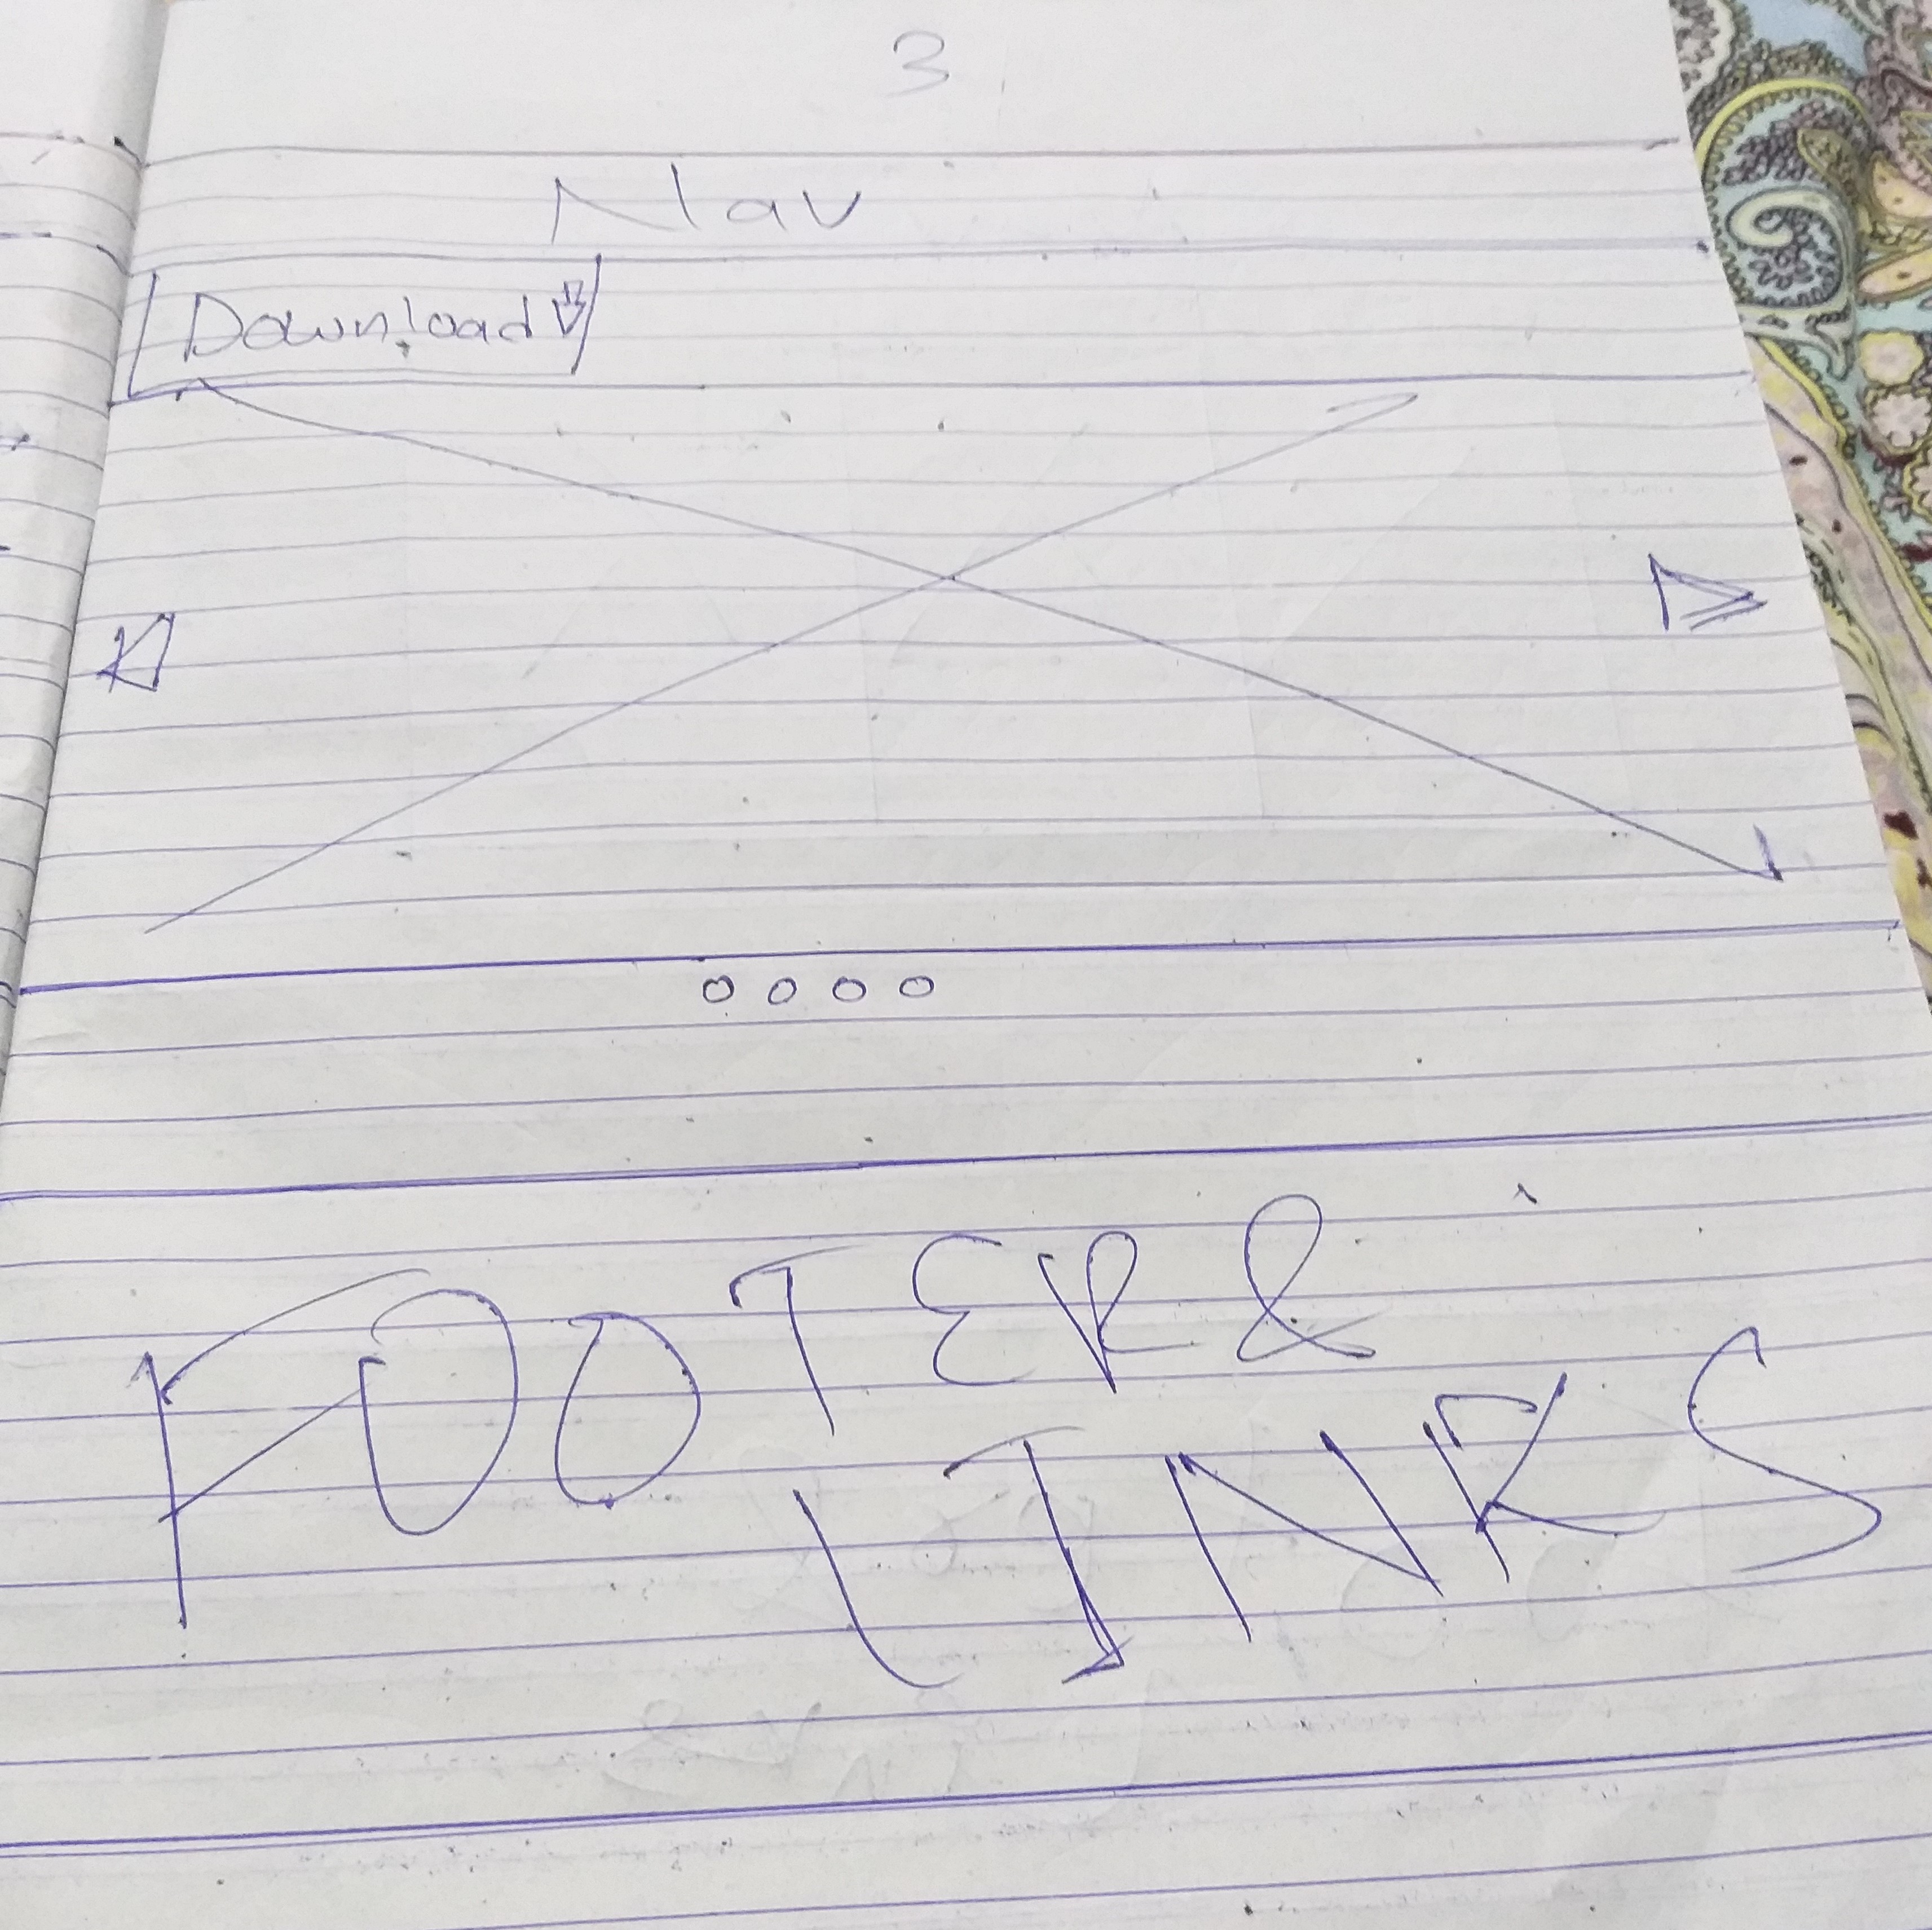 3
Nav
Download
FOOTER &
LINKS